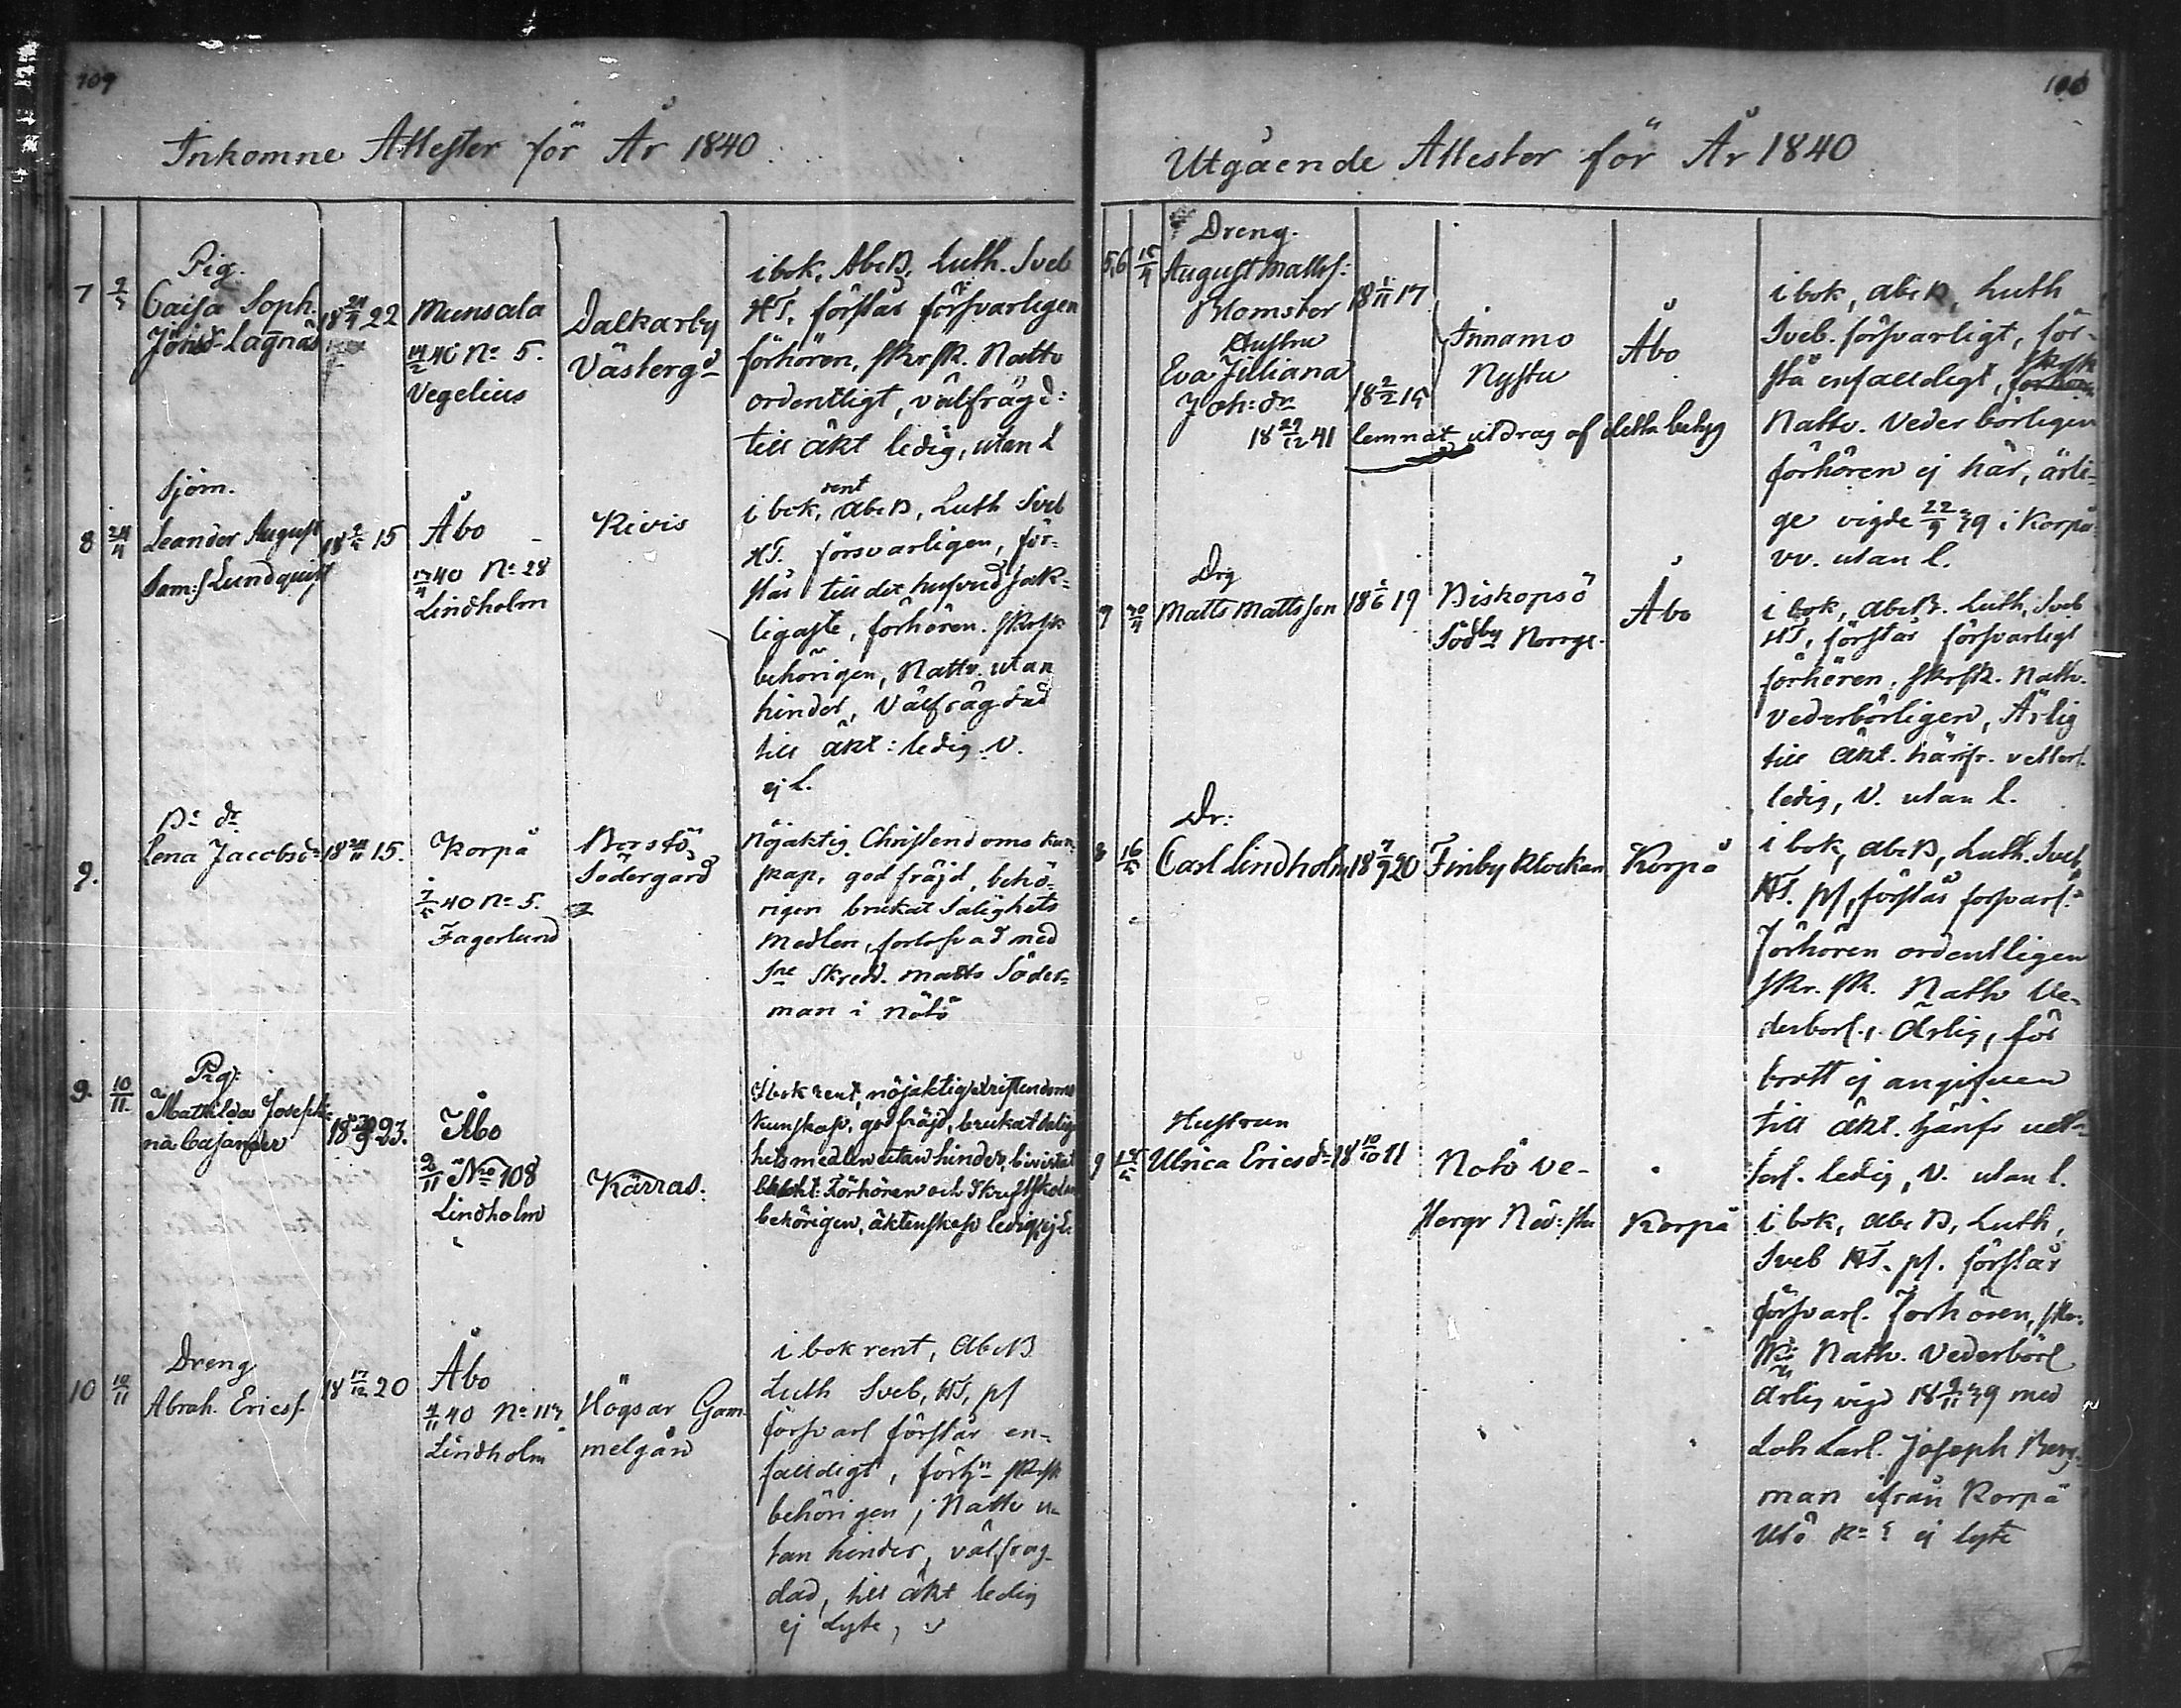 109
Inkomne Attester för År 1840
7
Pig.
Caisa Soph.
Jönsdr Lagnäs
18 24/9 22
Munsala
14/2 40 No 5.
Vegelius
Dalkarby
Västergd
i bok, AbeB, Luth. Sveb
HT, förstår försvarligen
förhören, skrsk. Nattv
ordentligt, välfrägd:
till äkt ledig, utan l
8 24/4
Sjöm.
Leander August
Sam:s Lundquist
Åbo
17/4 40 No 28
Lindholm
Kivis
i bok, rent AbeB, Luth Sveb
HT. försvarligen, för-
står till det hufvudsak-
ligaste, förhören. skrsk
behörigen, Nattv. utan
hinder, Välfrägdad
till äkt: ledig. V.
ej l.
9.
Bd dr
Lena Jacobsdr
18 24/11 15.
Korpå
7/5 40 No 5.
Fagerlund
Borstö
Södergård
Nöjaktig Christendoms kun-
skap, god fräjd, behö-
rigen brukat Salighets
medlen, förlofvad med
Sne Skredd. Matts Söder-
man i Nötö
9. 10/11.
Pig:
Mathilda Josephi-
na Cajander
23.
Åbo
2/11 No 108
Lindholm
Kärras.
I bok rent, nöjaktig christendoms
kunskap, god fräjd, brukat salig-
hets medlen utan hinder, bivistat
Förhören och Skriftskolan
behörigen, äktenskap ledig, ej L.
10 10/11
Dreng
Abrah. Ericss.
18 17/12 20
Åbo
4/11 40 No 113
Lindholm
Högsar Gam-
melgård
i bok rent, AbeB
Luth Sveb, HT, ps
försvarl förstår en-
falldigt, förhn skrsk
behörigen, Nattv u-
tan hinder, välfräg-
dad, till äkt ledig
ej Lyte, v
Utgående Attester för År 1840
5,6 15/4
Dreng.
August Matts:
Blomster
18 1/11 17
Hustru
Eva Juliana
Joh: dr
18 2/2 15
Innamo
Nystu
Åbo
18 29/12 41 lemnat utdrag af detta betyg
i bok, abeB, Luth
Sveb. försvarligt, för-
stå enfalldigt, skrsk
Nattv. Vederbörligen
förhören ej här, ärli-
ge vigde 22/9 39 i Korpo
vv. utan l.
7 30/4
Drg
Matts Mattsson
18 1/6 19
Biskopsö
Södby Norrg.
Åbo
i bok, abeB. Luth, Sveb
HT, förstår försvarligt
förhören, skrsk. Nattv.
Vederbörligen, Ärlig
till äkt. härifr. vetterl.
ledig, V. utan l.
8 16/5
Dr:
Carl Lindholm
18 7/9 20
Finby Klockan
Korpo
i bok, abeB, Luth. Sveb
HT. ps, förstår försvarl.
Förhören ordentligen
skr. sk. Nattv Ve-
derborl., Ärlig, för
brott ej angifven
till äkt. härifr vet-
terl. ledig, V. utan l.
9
Hustrun
Ulrica Ericsdr
18 10/10 11
Nötö Ve-
Korpo
i bok, abeB, Luth,
Sveb HT. ps. förstår
försvarl. Förhören, skr.
Nattv. Vederbörl
Ärlig vigd 18 9/11 39 med
Carl. Joseph Berg-
man ifrån Korpo
Utö ej lyte